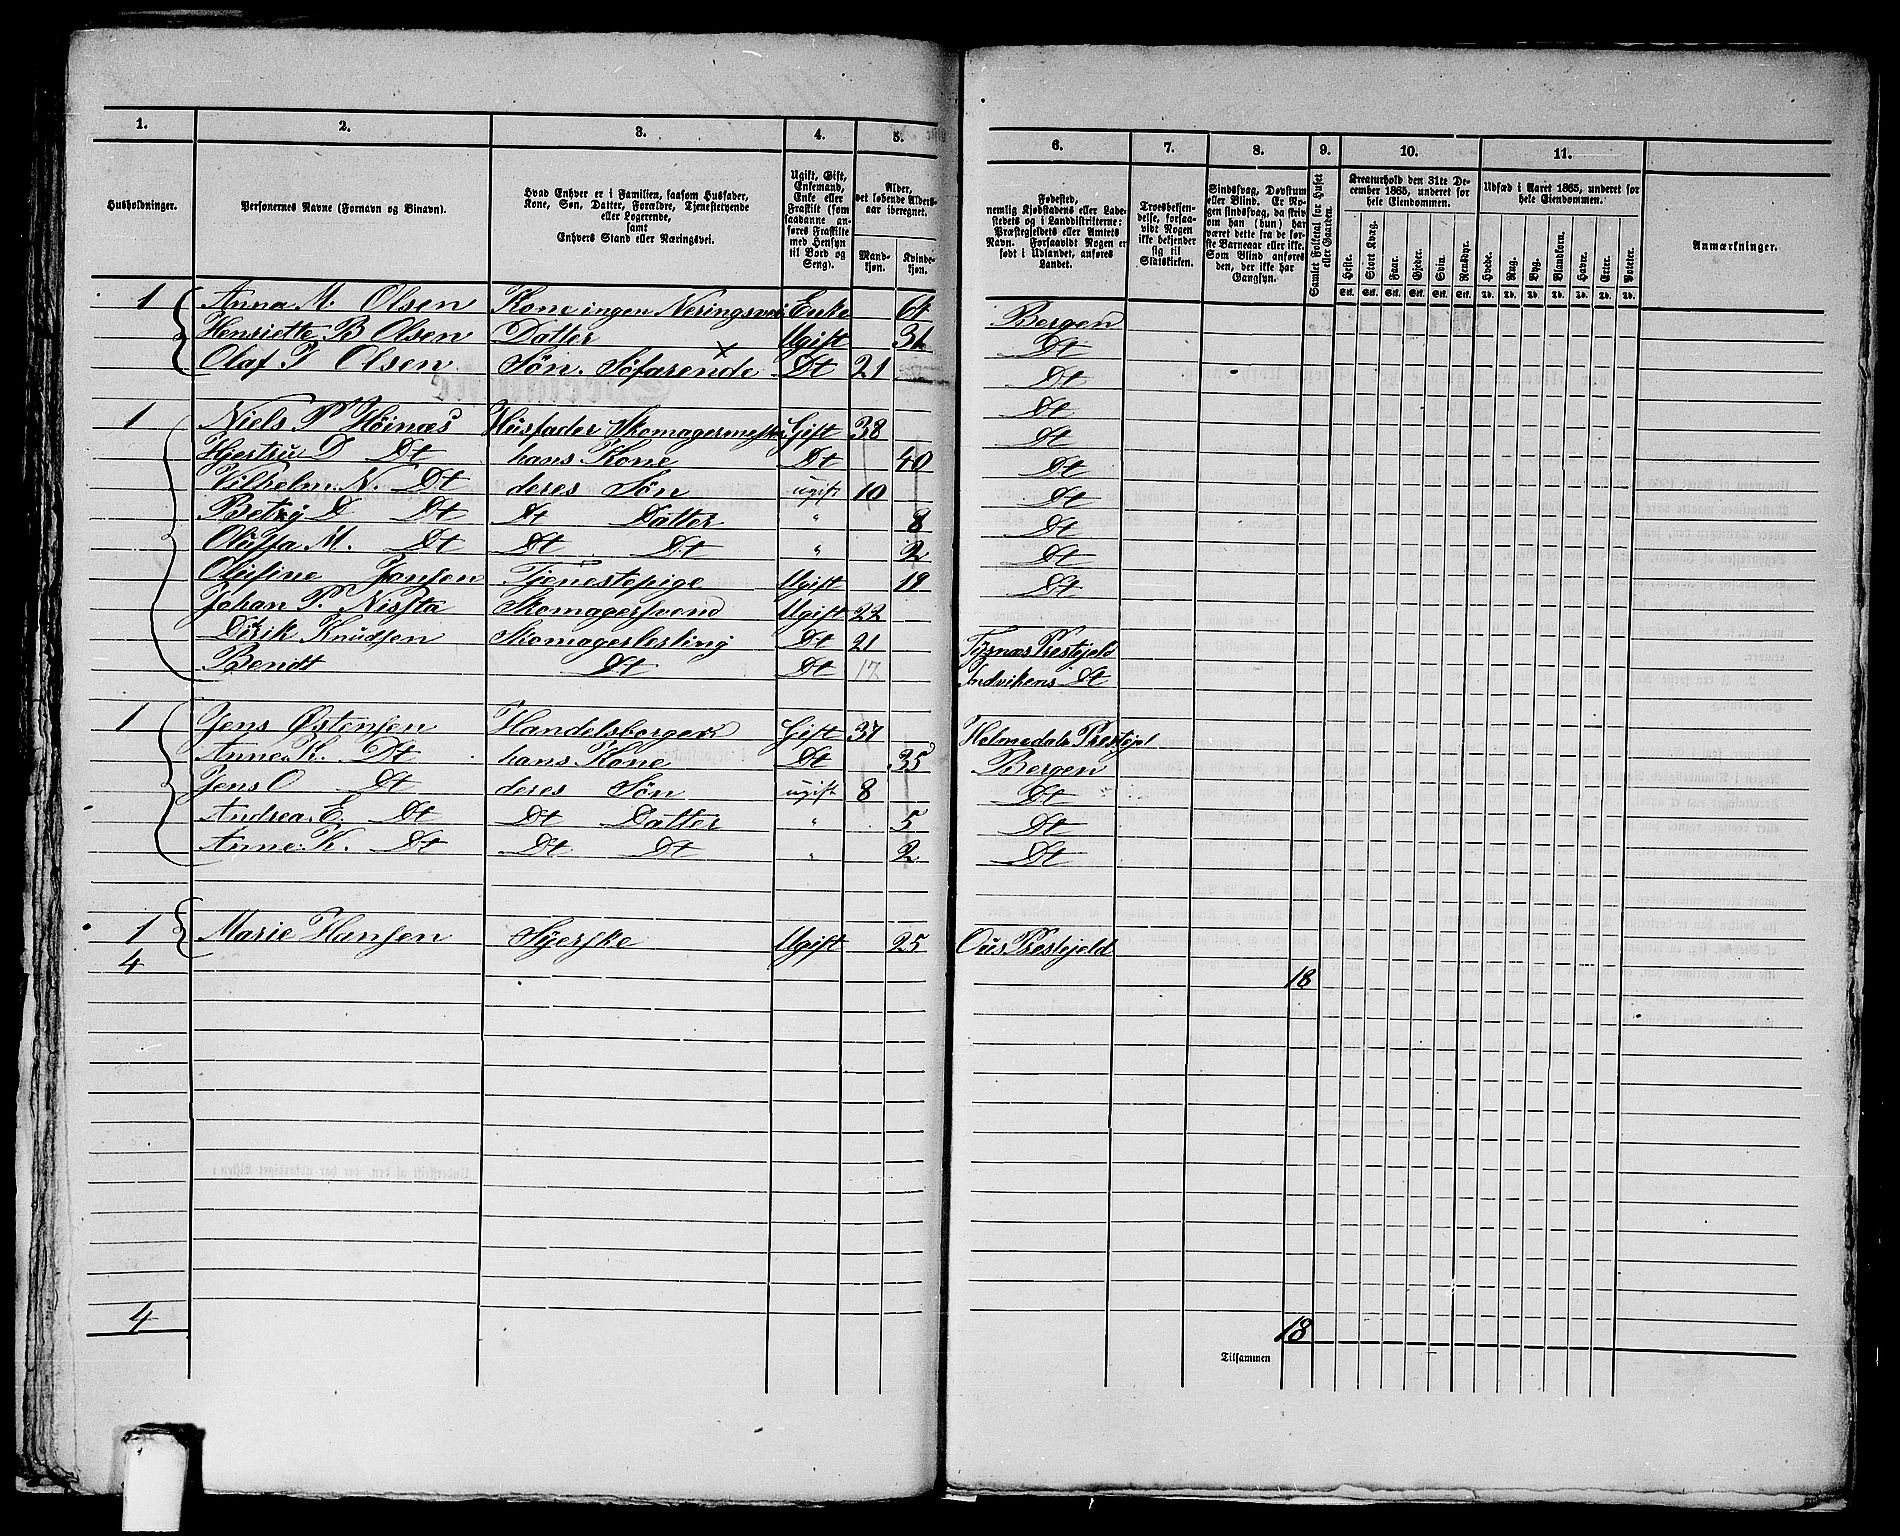 1. 2. 3. 4. 5. 6. 7. 8. 9. 10. 11.
Husholdninger.
Personernes Navne (Fornavn og Binavn).
Hvad Enhver er i Familien, saasom Husfader,
Kone, Søn, Datter, Forældre, Tjenestetyende
eller Logerende,
samt
Enhvers Stand eller Næringsvei.
Ugift, Gift,
Enkemand,
Enke eller
Fraskilt (som
saadanne an-
føres Fraskilte
med Hensyn
til Bord og
Seng).
Alder,
det løbende Alders-
aar iberegnet.
Mand-
kjøn.
Kvinde-
kjøn.
Fødested,
nemlig Kjøbstadens eller Lade-
stedets og i Landdistrikterne:
Præstegjeldets eller Amtets
Navn. Forsaavidt Nogen er
født i Udlandet, anføres
Landet.
Troesbekjen-
delse, forsaa-
vidt Nogen
ikke bekjender
sig til
Statskirken.
Sindssvag, Døvstum
eller Blind. Er No-
gen sindssvag, da skriv
om han (hun) har
været dette fra de før-
ste Barneaar eller ikke.
Som Blind anføres
den, der ikke har
Gangsyn.
Samlet Folketal for Huset
eller Gaarden.
Kreaturhold den 31te De-
cember 1865, underet for
hele Eiendommen.
Heste. Stort Kvæg. Faar. Gjeder. Svin. Rensdyr.
Stk. Stk. Stk. Stk. Stk. Stk.
Udsæd i Aaret 1865, underet for
hele Eiendommen.
Hvede. Rug. Byg. Blandkorn. Havre. Erter. Poteter.
Td. Td. Td. Td. Td. Td. Td.
Anmærkninger.
1 Anna M. Olsen Kone ingen Neringsvei Enke 64 Bergen
Henriette B Olsen Datter Ugift 31 Dt
Olaf J Olsen Søn. Søfarende Dt 21 Dt
1 Niels P Høinæs Husfader Skomagermester Gift 38 Dt
Hjertru D Dt hans Kone Dt 40 Dt
Vilhelm N. Dt deres Søn ugift 10 Dt
Betzy D Dt Dt Datter " 8 Dt
Oluffa M. Dt Dt Dt " 2 Dt
Olufine Jansen Tjenestepige Ugift 19 Dt
Johan P. Nissta Skomagersvend Ugift 22 Dt
Dirik Knudsen Skomagerlerling Dt 21 Tysnæs Prestejeld
Bendt Dt Dt 17 Indvikens Dt
1 Jens Østensen Handelsborger Gift 37 Holmedals Prestejel
Anne K. Dt hans Kone Dt 35 Bergen
Jens O Dt deres Søn ugift 8 Dt
Andrea E Dt Dt Datter " 5 Dt
Anne K. Dt Dt Dt " 2 Dt
1 Marie Hansen Syerske Ugift 25 Ous Prestejeld
4 18
4 18
Tilsammen